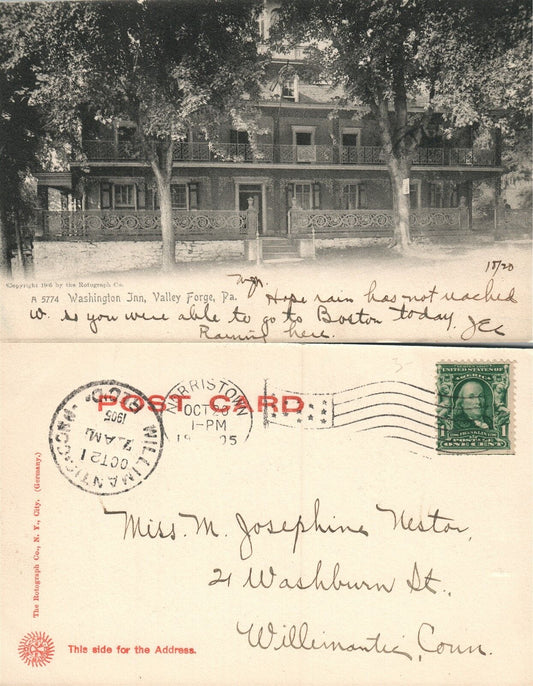 Copyright 1905 by the Rotograph Co.
A 5774 Washington Inn, Valley Forge, Pa.
10/20
Hope rain has not reached
W. so you were able to go to Boston today. JEC
Raining here.
POST CARD
NORRISTOWN
OCT 20
1-PM
1905
WILLIMANTIC, CONN. REC'D.
OCT 21
7 AM
1905
UNITED STATES OF AMERICA
POSTAGE
ONE CENT
Miss. M. Josephine Nestor,
21 Washburn St.,
Willimantic, Conn.
The Rotograph Co., N. Y., City. (Germany.)
This side for the Address.